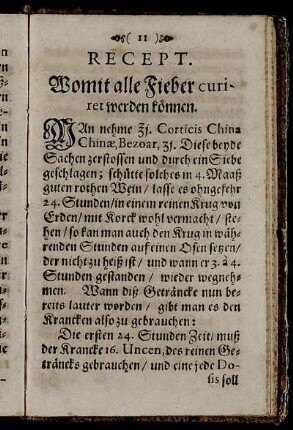 ( 11 )
RECEPT.
Womit alle Fieber curi-
ret werden können.
MAn nehme ʒj. Corticis China
Chinæ, Bezoar, ʒj. Diese beyde
Sachen zerstossen und durch ein Siebe
geschlagen; schütte solches in 4. Maaß
guten rothen Wein / lasse es ohngefehr
24. Stunden / in einem reinen Krug von
Erden / mit Korck wohl vermacht / ste-
hen / so kan man auch den Krug in wäh-
renden Stunden auf einen Ofen setzen /
der nicht zu heiß ist / und wann er 3. à 4.
Stunden gestanden / wieder wegneh-
men. Wann diß Geträncke nun be-
reits lauter worden / gibt man es den
Krancken also zu gebrauchen:
Die ersten 24. Stunden Zeit / muß
der Krancke 16. Uncen, des reinen Ge-
träncks gebrauchen / und eine jede Do-
sis soll